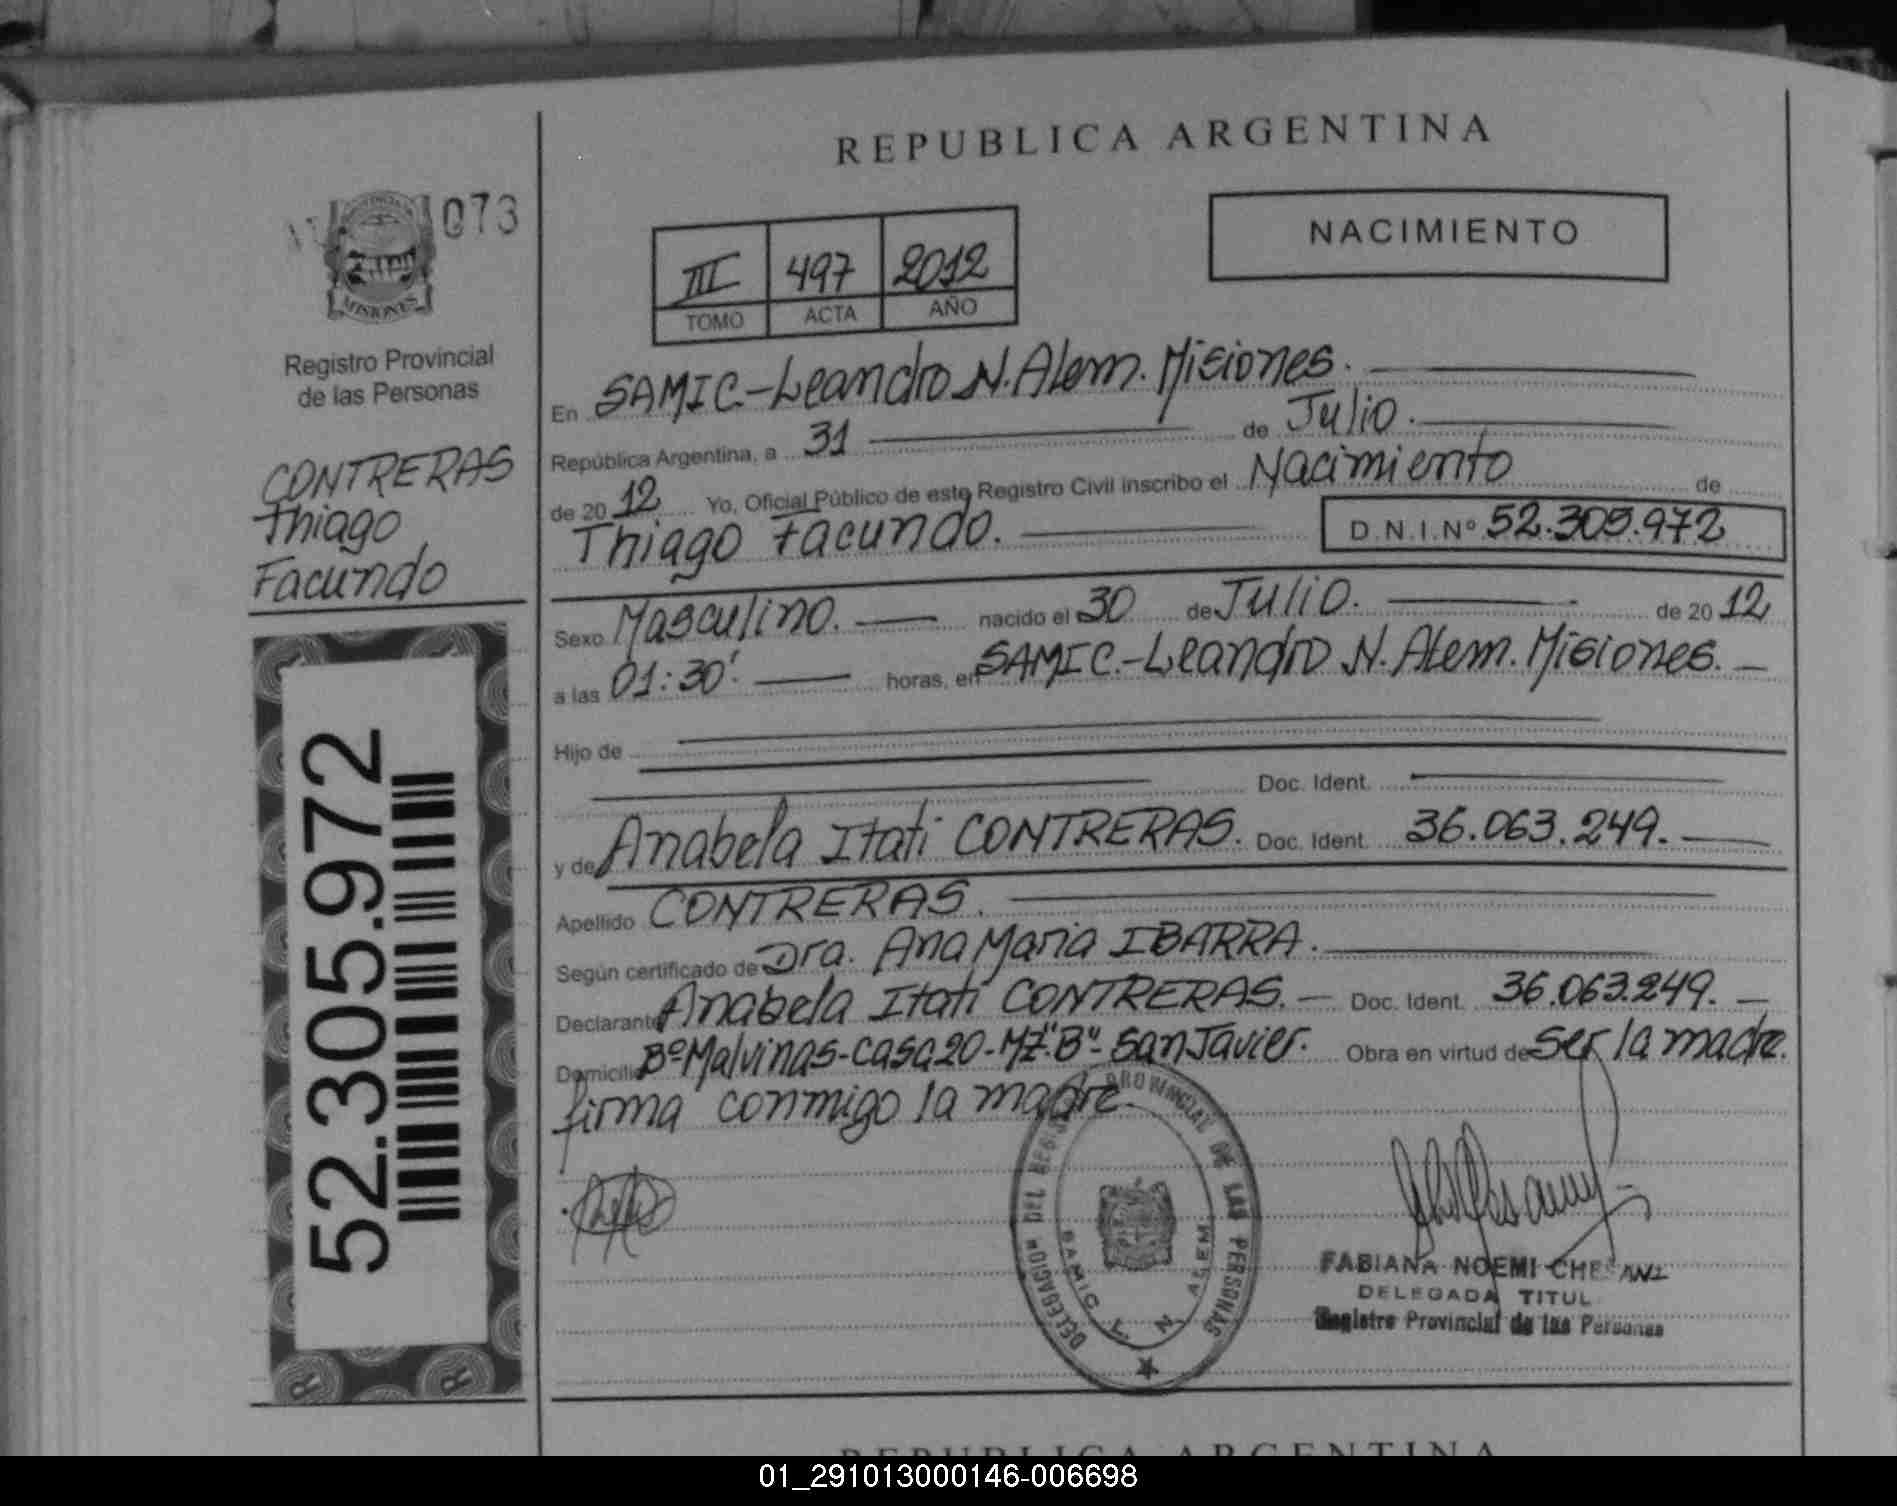 REPUBLICA ARGENTINA
073
MISIONES
Registro Provincial
de las Personas
CONTRERAS
Thiago
Facundo
52.305.972
R R
III 497 2012
TOMO ACTA AÑO
NACIMIENTO
En SAMIC-Leandro N. Alem. Misiones.
República Argentina, a 31 de Julio.
de 20 12 Yo, Oficial Público de este Registro Civil inscribo el Nacimiento de
Thiago Facundo. D.N.I.Nº 52.305.972
Sexo Masculino. nacido el 30 de Julio. de 20 12
a las 01:30' horas, en SAMIC.-Leandro N. Alem. Misiones.
Hijo de
Doc. Ident.
y de Anabela Itati CONTRERAS. Doc. Ident. 36.063.249.
Apellido CONTRERAS.
Según certificado de Dra. Ana Maria IBARRA.
Declarante Anabela Itati CONTRERAS. Doc. Ident. 36.063.249.
Domicilio Bº Malvinas-Casa 20-Mz "B"- San Javier. Obra en virtud de ser la madre.
firma conmigo la madre.
DELEGACION DEL REGISTRO PROVINCIAL DE LAS PERSONAS
SAMIC L N ALEM
FABIANA NOEMI CHESANI
DELEGADA TITUL
Registro Provincial de las Personas
REPUBLICA ARGENTINA
01_291013000146-006698